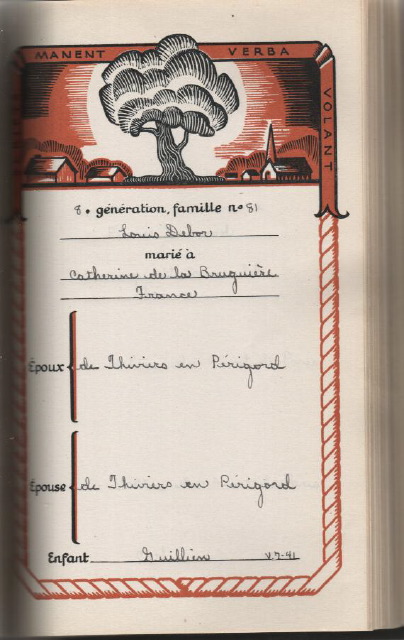 MANENT VERBA
VOLANT
8e génération, famille no 81
Louis Debor
marié à
Catherine de la Bruguière
France
Époux de Thiviers en Périgord
Épouse de Thiviers en Périgord
Enfant Guillien v.7-41